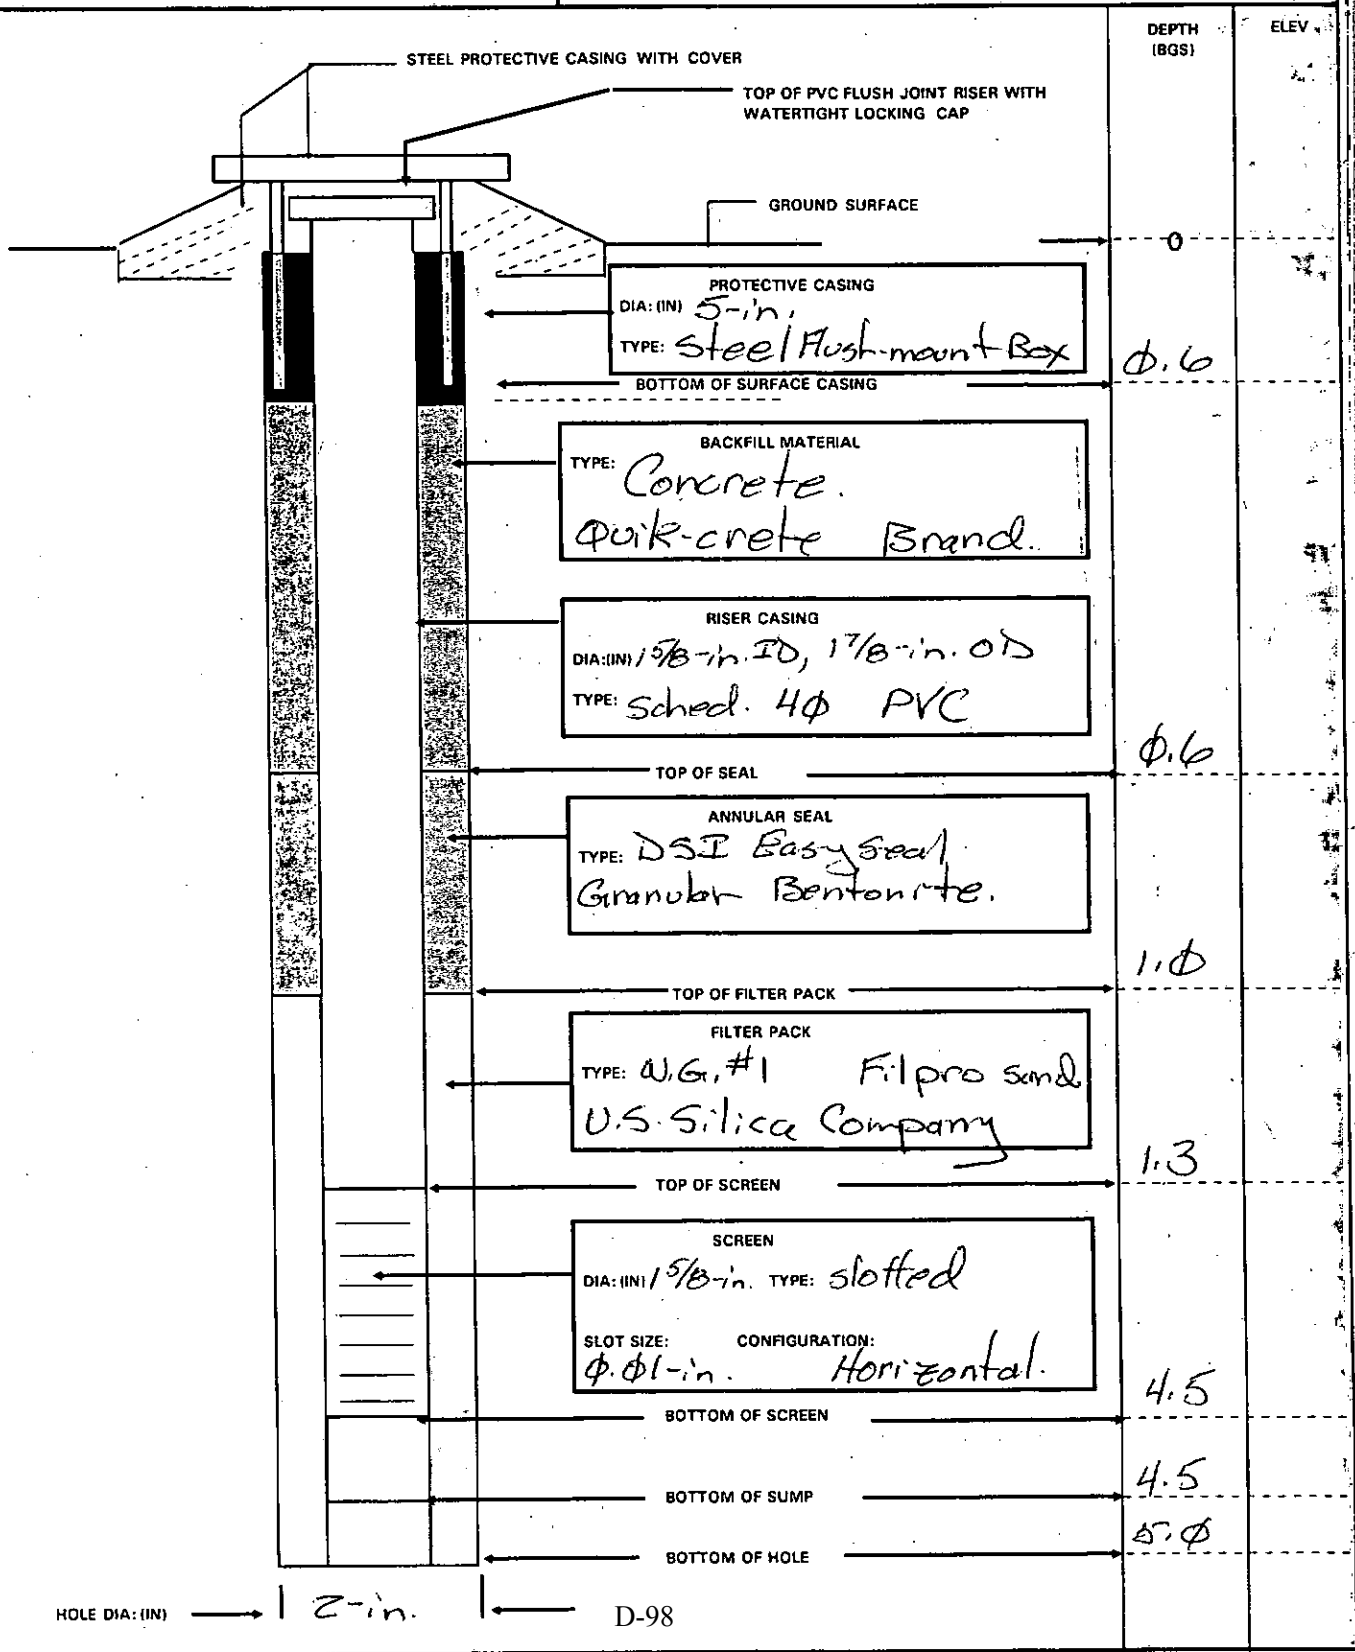 DEPTH (BGS)
ELEV
STEEL PROTECTIVE CASING WITH COVER
TOP OF PVC FLUSH JOINT RISER WITH
WATERTIGHT LOCKING CAP
GROUND SURFACE
0
PROTECTIVE CASING
DIA: (IN) 5-in.
TYPE: Steel Flush-mount Box
BOTTOM OF SURFACE CASING 0.6
BACKFILL MATERIAL
TYPE: Concrete.
Quik-crete Brand.
RISER CASING
DIA:(IN) 1 5/8-in. ID, 1 7/8-in. OD
TYPE: Sched. 40 PVC
TOP OF SEAL 0.6
ANNULAR SEAL
TYPE: DSI Easy Seal
Granular Bentonite.
TOP OF FILTER PACK 1.0
FILTER PACK
TYPE: W.G. #1 Filpro sand
U.S. Silica Company
TOP OF SCREEN 1.3
SCREEN
DIA: (IN) 1 5/8-in. TYPE: slotted
SLOT SIZE: CONFIGURATION:
0.01-in. Horizontal.
BOTTOM OF SCREEN 4.5
BOTTOM OF SUMP 4.5
BOTTOM OF HOLE 5.0
HOLE DIA: (IN) 2-in.
D-98